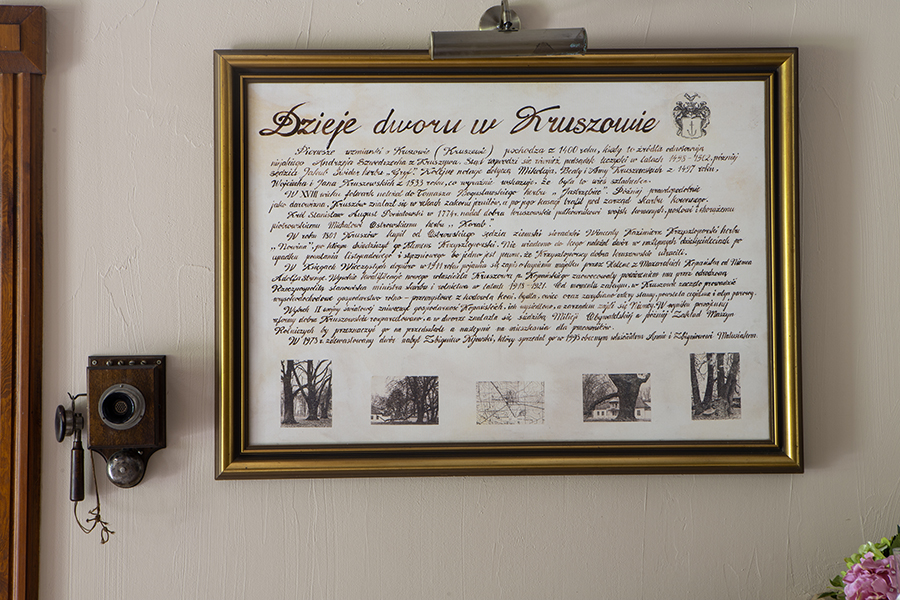 Dzieje dworu w Kruszowie
Pierwsze wzmianki o Kruszowie (Kruszewie) pochodzą z 1400 roku, kiedy to źródła odnotowują
niejakiego Andrzeja Szwedrzecha z Kruszewa. Stąd wywodzi się również podsędek łęczycki w latach 1498-1502, później
sędzia Jakub Świder herbu „Gryf". Kolejne notacje dotyczą Mikołaja, Beaty i Anny Kruszewskich z 1497 roku,
Wojciecha i Jana Kruszewskich z 1533 roku, co wyraźnie wskazuje, że była to wieś szlachecka.
W XVIII wieku folwark należał do Tomasza Bogusławskiego herbu „Jastrzębie". Później prawdopodobnie
jako darowizna, Kruszów znalazł się w rękach zakonu jezuitów, a po jego kasacji trafił pod zarząd skarbu koronnego.
Król Stanisław August Poniatowski w 1774r. nadał dobra kruszowskie pułkownikowi wojsk koronnych, posłowi i chorążemu
piotrkowskiemu Michałowi Ostrowskiemu herbu „Korab".
W roku 1801 Kruszów kupił od Ostrowskiego sędzia ziemski sieradzki Wincenty Kazimierz Krzyształporski herbu
„Nowina", po którym dziedziczył go Klemens Krzyształporski. Nie wiadomo do kogo należał dwór w następnych dziesięcioleciach po
upadku powstania listopadowego i styczniowego bo jedno jest pewne, że Krzyształporscy dobra kruszowskie utracili.
W Księgach Wieczystych dopiero w 1911 roku pojawia się zapis o kupieniu majątku przez Helenę z Mazarakich Kępińską od
Wysokie kwalifikacje nowego właściciela Kruszowa p. Kępińskiego zaowocowały powierzeniem mu przez odrodzoną
Rzeczpospolitą stanowiska ministra skarbu i rolnictwa w latach 1919-1921. Od momentu zakupu, w Kruszowie zaczęto prowadzić
wysokodochodowe gospodarstwo rolno-przemysłowe z hodowlą koni, bydła, owiec oraz zarybiono cztery stawy, powstała cegielnia i olejarnia.
Wybuch II wojny światowej zniweczył gospodarność Kępińskich, ich wysiedlono, a zarządem zajęli się Niemcy. W wyniku powojennej
reformy dobra Kruszowskie rozparcelowano, a w dworze znalazła się siedziba Milicji Obywatelskiej a później Zakład Maszyn
Rolniczych by przeznaczyć go na przedszkole a następnie na mieszkania dla pracowników.
W 1973 r. zdewastowany dwór nabył Zbigniew Kijewski, który sprzedał go w 1995 obecnym właścicielom Annie i Zbigniewowi Matusiakom.